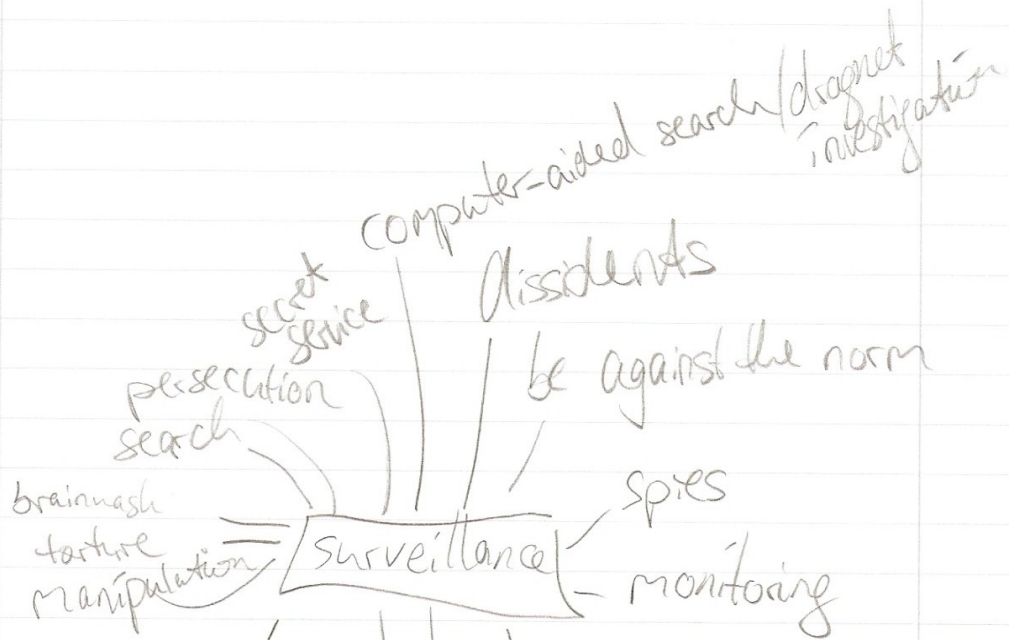 computer-aided search/dragnet
investigation
secret
service
dissidents
be against the norm
persecution
search
spies
brainwash
torture
manipulation
surveillance
monitoring